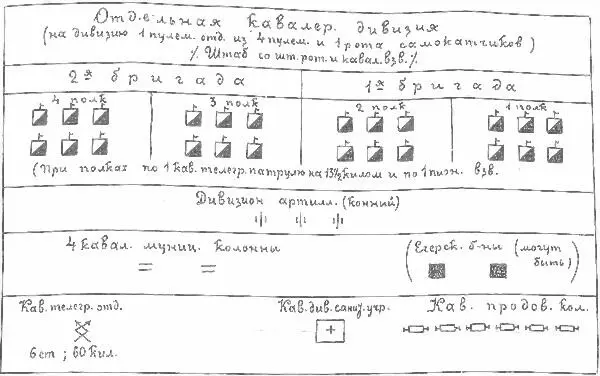 Отдельная кавалер. дивизия
(на дивизию 1 пулем. отд. из 4 пулем. и 1 рота самокатчиков)
% Штаб со шт. рот. и кавал. взв. %
2ая бригада
1ая бригада
4 полк
3 полк
2 полк
1 полк
(При полках по 1 кав. телегр. патрулю на 13½ килом и по 1 пион. взв.
Дивизион артилл. (конный)
4 кавал. муниц. колонны
(Егерск. б-ны (могут быть)
Кав. телегр. отд.
6 ст ; 60 кил.
Кав. див. санит. учр.
Кав. продов. кол.